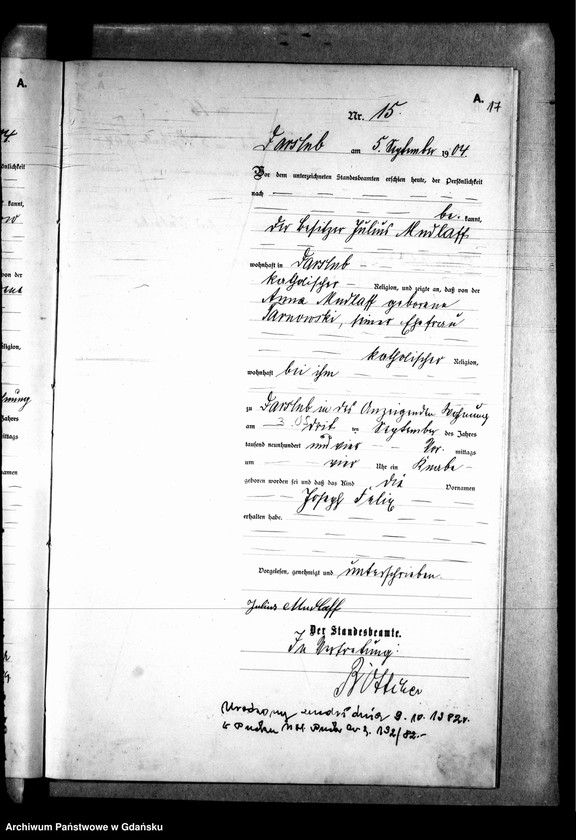 A.
A.
17
Nr. 15.
Darslub am 5. September 1904.
Vor dem unterzeichneten Standesbeamten erschien heute, der Persönlichkeit
nach
be kannt,
der Besitzer Julius Mudlaff
wohnhaft in Darslub
katholischer Religion, und zeigte an, daß von der
Anna Mudlaff geborene
Tarnowski, seiner Ehefrau
katholischer Religion,
wohnhaft bei ihm
zu Darslub in des Anzeigenden Wohnung
am drit ten September des Jahres
tausend neunhundert und vier Vor mittags
um vier Uhr ein Knabe
geboren worden sei und daß das Kind die Vornamen
Joseph Felix
erhalten habe.
Vorgelesen, genehmigt und unterschrieben.
Julius Mudlaff
Der Standesbeamte.
In Vertretung:
Böttcher
dnia 9. 10. 1982r.
132/82.-
Archiwum Państwowe w Gdańsku